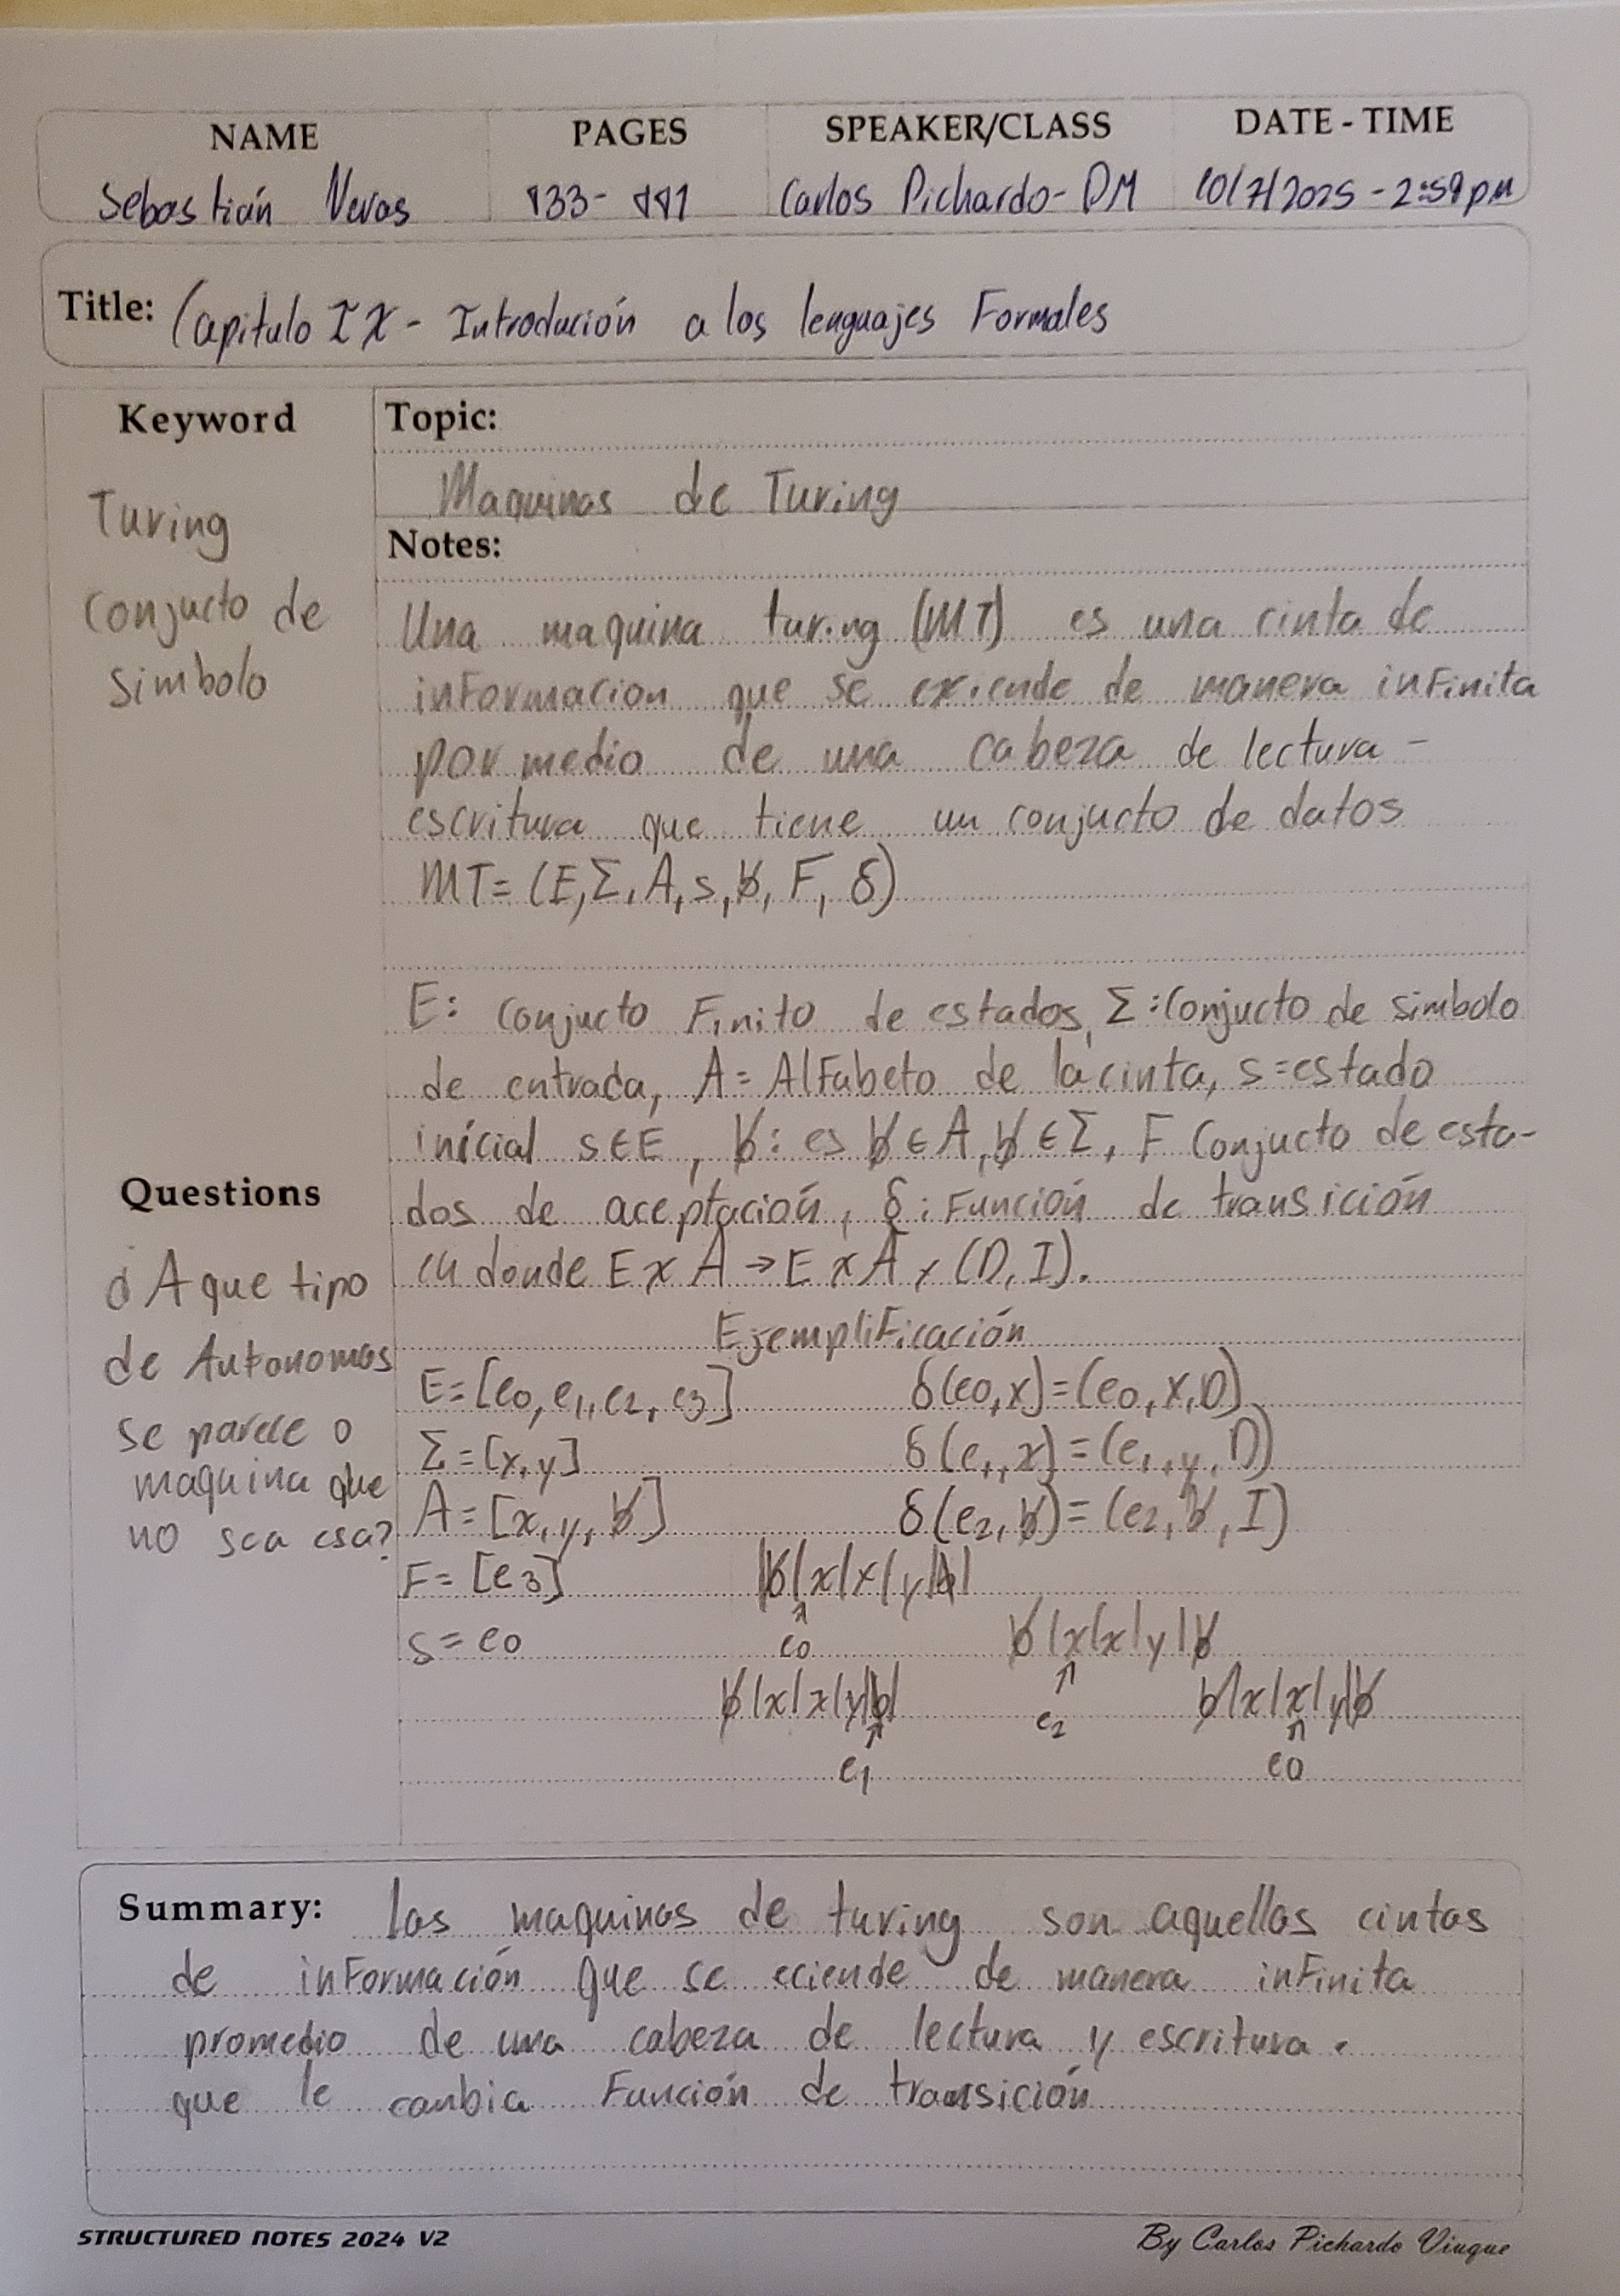 NAME PAGES SPEAKER/CLASS DATE - TIME
Sebastián Veras 433- 441 Carlos Pichardo- DM 10/7/2025 - 2:59pm
Title: Capitulo IX - Introdución a los lenguajes Formales
Keyword
Turing
Conjucto de
Simbolo
Topic:
Maquinas de Turing
Notes:
Una maquina turing (MT) es una cinta de
informacion que se exiende de manera infinita
por medio de una cabeza de lectura -
escritura que tiene un conjucto de datos
MT= (E, Σ, A, s, ƀ, F, δ)
E: Conjucto Finito de estados, Σ: Conjucto de simbolo
de entrada, A= Alfabeto de la cinta, s=estado
inícial s∈E, ƀ: es ƀ ∈ A, ƀ ∈ Σ, F Conjucto de esta-
dos de aceptación, δ: Función de transición
en donde E x A → E x A x (D, I).
Questions
¿A que tipo
de Autonomas
se parece o
maquina que
no sea esa?
Ejemplificación
E= [e0, e1, e2, e3] δ(e0,x)=(e0,x,D)
Σ = [x,y] δ(e1,x)=(e1,y,D)
A= [x,y,ƀ] δ(e2,ƀ)=(e2,ƀ,I)
F= [e3] |ƀ|x|x|y|ƀ|
s= e0 e0 ƀ|x|x|y|ƀ
ƀ|x|x|y|ƀ| e2 ƀ|x|x|y|ƀ
e1 e0
Summary: las maquinas de turing son aquellas cintas
de información que se eciende de manera infinita
promedio de una cabeza de lectura y escritura.
que le canbia Función de transición
STRUCTURED NOTES 2024 V2 By Carlos Pichardo Viuque